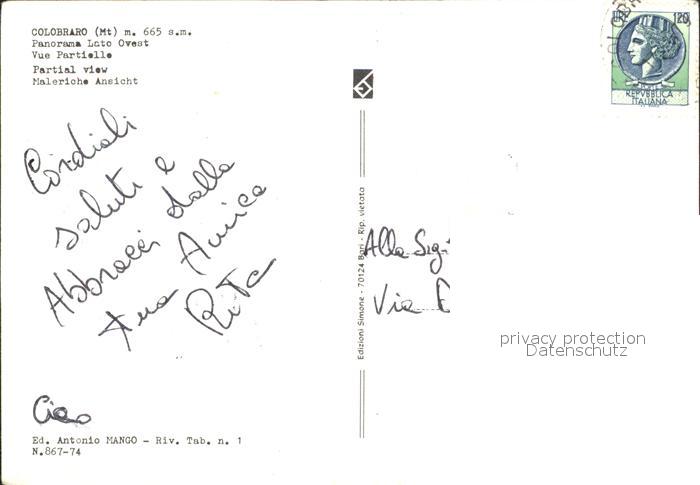 COLOBRARO (Mt) m. 665 s.m.
Panorama Lato Ovest
Vue Partielle
Partial view
Maleriche Ansicht
Cordiali
saluti e
Abbracci dalla
tua Amica
Rita
Ciao
Ed. Antonio MANGO - Riv. Tab. n. 1
N.867-74
Edizioni Simone - 70124 Bari - Rip. vietata
LIRE 120
POSTE
REPVBBLICA
ITALIANA
Alla Sig
Via
privacy protection
Datenschutz